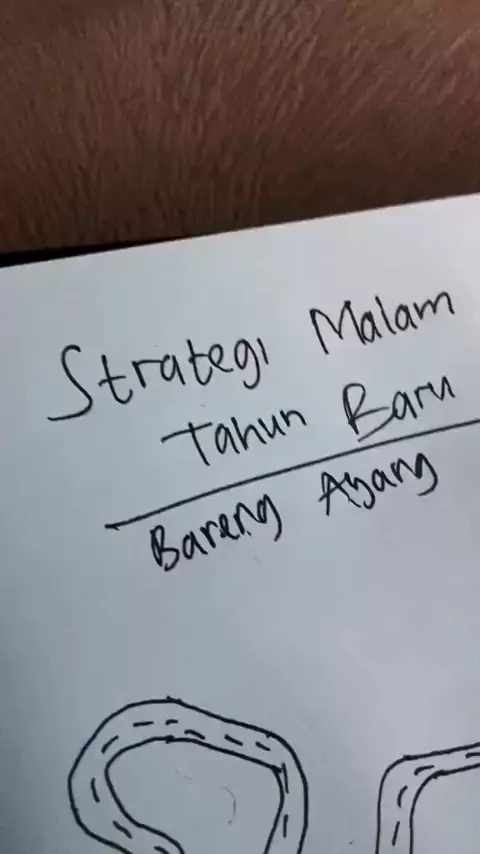 Strategi Malam
Tahun Baru
Bareng Ayang